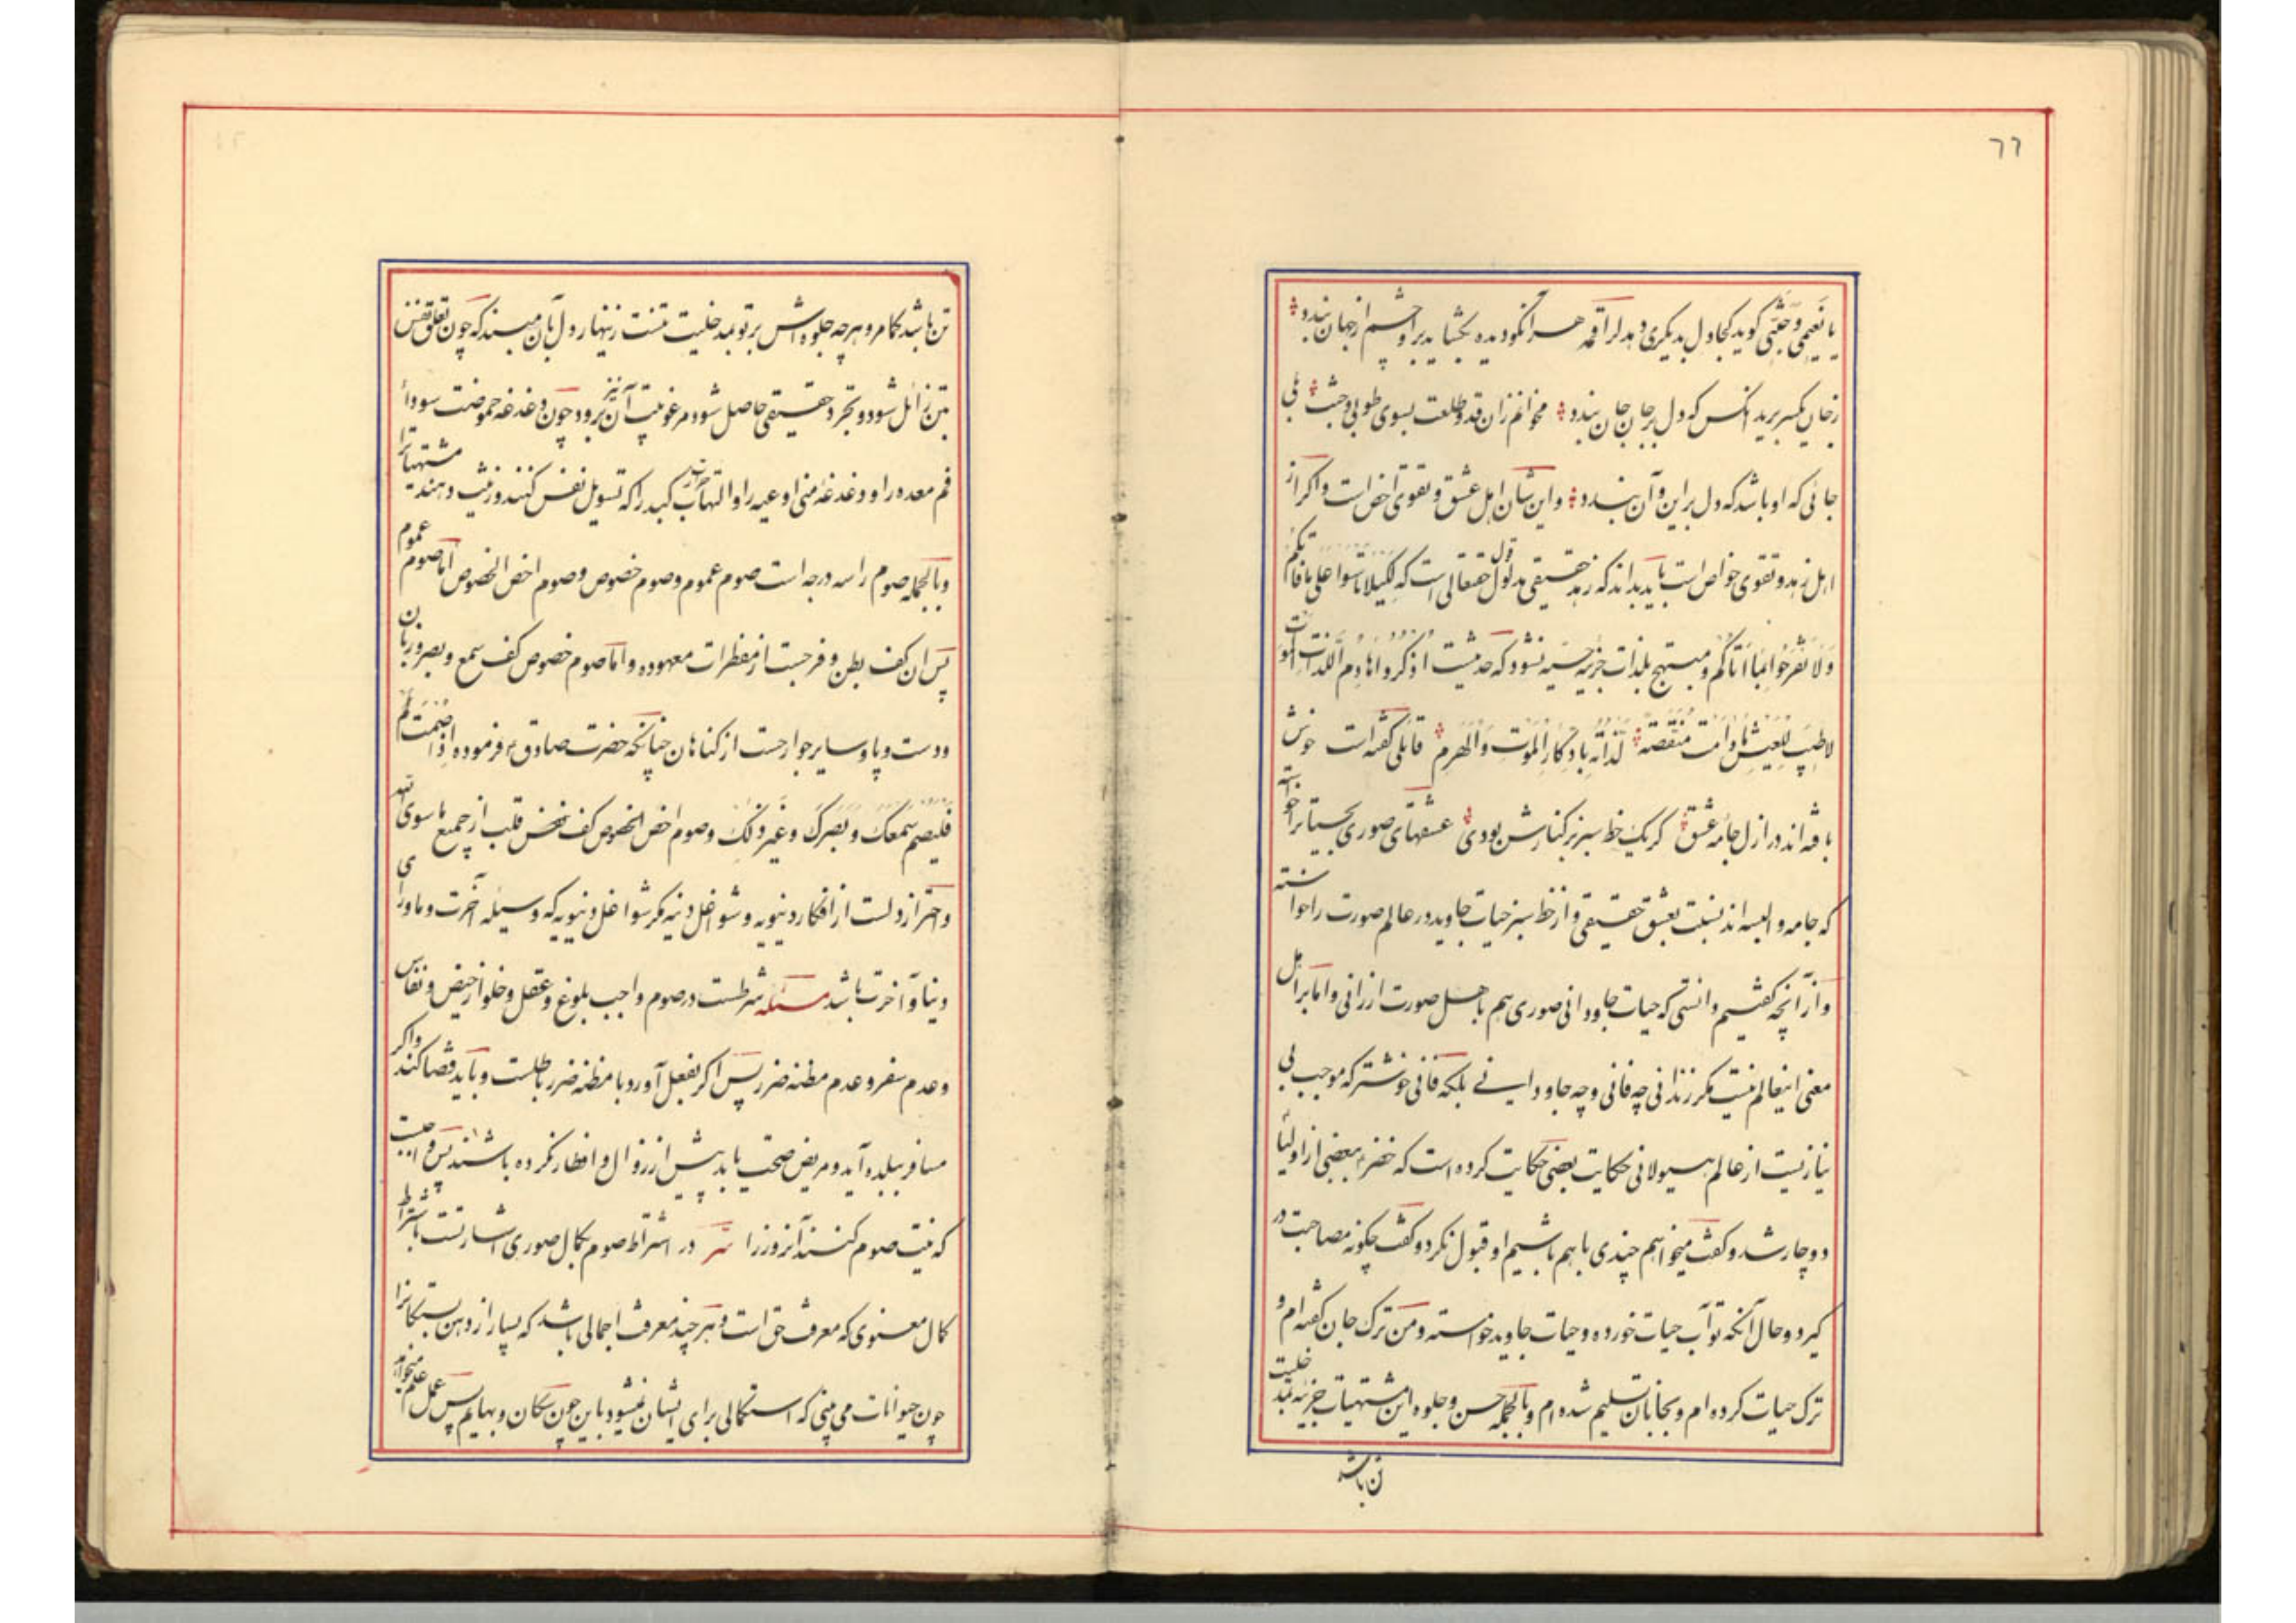 ٦٦
یا نعیمی و جنتی گوید کجا دل بدیگری دهد لراقمه هر آنکو دیده بگشاید بر او چشم از جهان بندد
ز جان یکسر برید آنکس که دل بر جان جان بندد مخوانم زان قد و طلعت بسوی طوبی و جنت
جائی که او باشد که دل بر این و آن بندد و این شان اهل عشق و تقوی اخص است و اگر از
اهل زهد و تقوی خواص است باید بداند که زهد حقیقی مدلول قول حقتعالی است که لکیلا تاسوا علی ما فاتکم
و لا تفرحوا بما اتاکم و مبتهج بلذات جزئیه حسیه نشود که حدیث است اذکروا هادم اللذات
لا طیب للعیش ما دامت منغصة لذاته بادکار الموت و الهرم قائلی گفته است خوش
بافته‌اند در ازل جامه عشق گر یک خط سبز بر کنارش بودی عشقهای صوری حیات را خواسته
که جامه و البسه‌اند نسبت بعشق حقیقی و از خط سبز حیات جاوید در عالم صورت را خواسته
و از آنچه گفتیم دانستی که حیات جاودانی صوری هم باهل صورت ارزانی و اما بر اهل
معنی اینعالم نیست مگر زندانی چه فانی و چه جاودانی بلکه فانی خوشتر که موجب بی
نیازیست از عالم هیولانی حکایت بعضی حکایت کرده است که خضر ببعضی از اولیا
دوچار شد و گفت میخواهم چندی با هم باشیم او قبول نکرد و گفت چگونه مصاحبت در
گیرد و حال آنکه تو آب حیات خورده و حیات جاوید خواسته و من ترک جان گفته‌ام و
ترک حیات کرده‌ام و بجانان تسلیم شده‌ام و بالجمله حسن و جلوه این مشتهیات جزئیه خلیت
تن باشد
تن باشد کامر و هرچه جلوه‌اش بر تو بمد خلیت تنست زینهار دل بآن مبند که چون تعلق نفس
بتن زائل شود و تجرد حقیقی حاصل شود مرغوبیت آن نیز برود چون دغدغه حموضت سودا
فم معده را و دغدغه منی اوعیه را و التهاب حرارت کبد را که تسویل نفس کنند و زینت دهند مشتهیات را
و بالجمله صوم را سه درجه است صوم عموم و صوم خصوص و صوم اخص الخصوص اما صوم عموم
پس آن کف بطن و فرجست از مفطرات معهوده و اما صوم خصوص کف سمع و بصر و زبان
و دست و پا و سایر جوارحست از گناهان چنانکه حضرت صادق ع فرموده اذا صمت
فلیصم سمعک و بصرک و غیر ذلک و صوم اخص الخصوص کف نفس قلب از جمیع ماسوی الله
و احتراز دلست از افکار دنیویه و شواغل دنیه مگر شواغل دنیویه که وسیله آخرت و ماورای
دنیا و آخرت باشد مسئله شرطست در صوم واجب بلوغ و عقل و خلو از حیض و نفاس
و عدم سفر و عدم مظنه ضرر پس اگر بفعل آورد با مظنه ضرر باطلست و باید قضا کند و اگر
مسافر ببلده آید و مریض صحت یابد پیش از زوال و افطار نکرده باشند پس واجبست
که نیت صوم کنند آنروز را سر در اشتراط صوم بکمال صوری اشارتست باشتراط
کمال معنوی که معرفت حق است و هر چند معرفت اجمالی باشد که بسیار از دهن بستگان را
چون حیوانات می‌بینی که استکمالی برای ایشان نمیشود باین چون سگان و بهایم پس عمل علم میخواهد